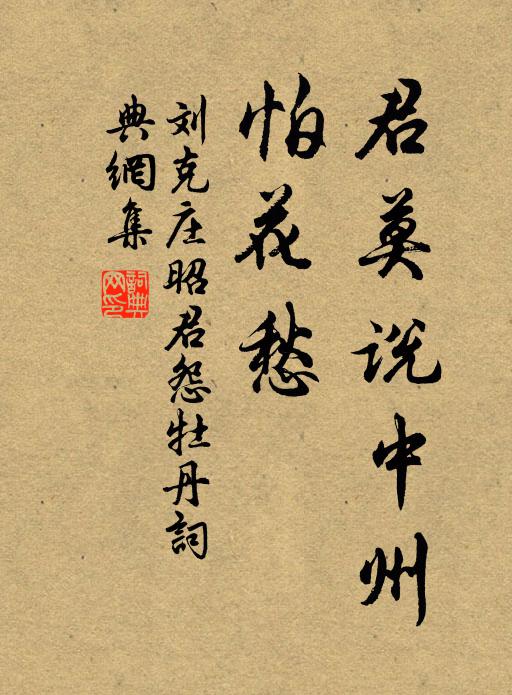 君莫说中州
怕花愁
刘克庄昭君怨牡丹詞
典網集
詞典
网印